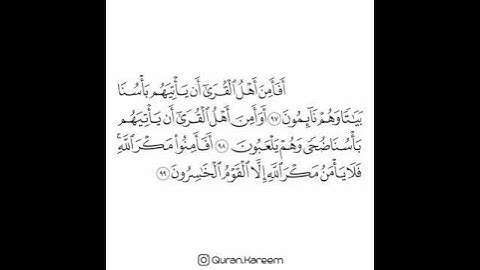 أَفَأَمِنَ أَهْلُ ٱلْقُرَىٰٓ أَن يَأْتِيَهُم بَأْسُنَا
بَيَـٰتًا وَهُمْ نَآئِمُونَ ٩٧ أَوَأَمِنَ أَهْلُ ٱلْقُرَىٰٓ أَن يَأْتِيَهُم
بَأْسُنَا ضُحًى وَهُمْ يَلْعَبُونَ ٩٨ أَفَأَمِنُوا۟ مَكْرَ ٱللَّهِ ۚ
فَلَا يَأْمَنُ مَكْرَ ٱللَّهِ إِلَّا ٱلْقَوْمُ ٱلْخَـٰسِرُونَ ٩٩
Quran.Kareem